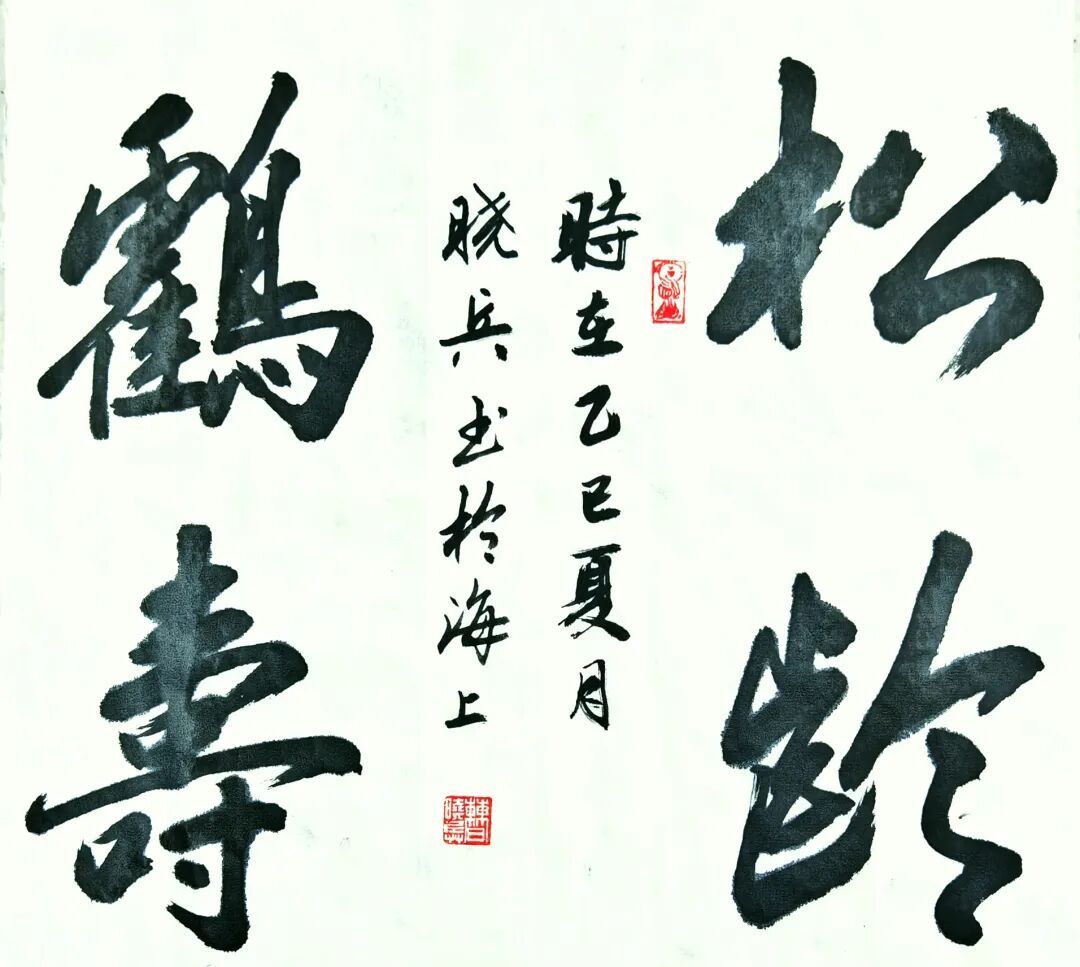 松齡
鶴壽
時在乙巳夏月
晓兵书於海上